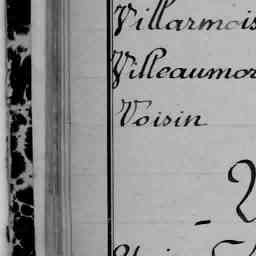 Villarmois
Villeaumor
Voisin